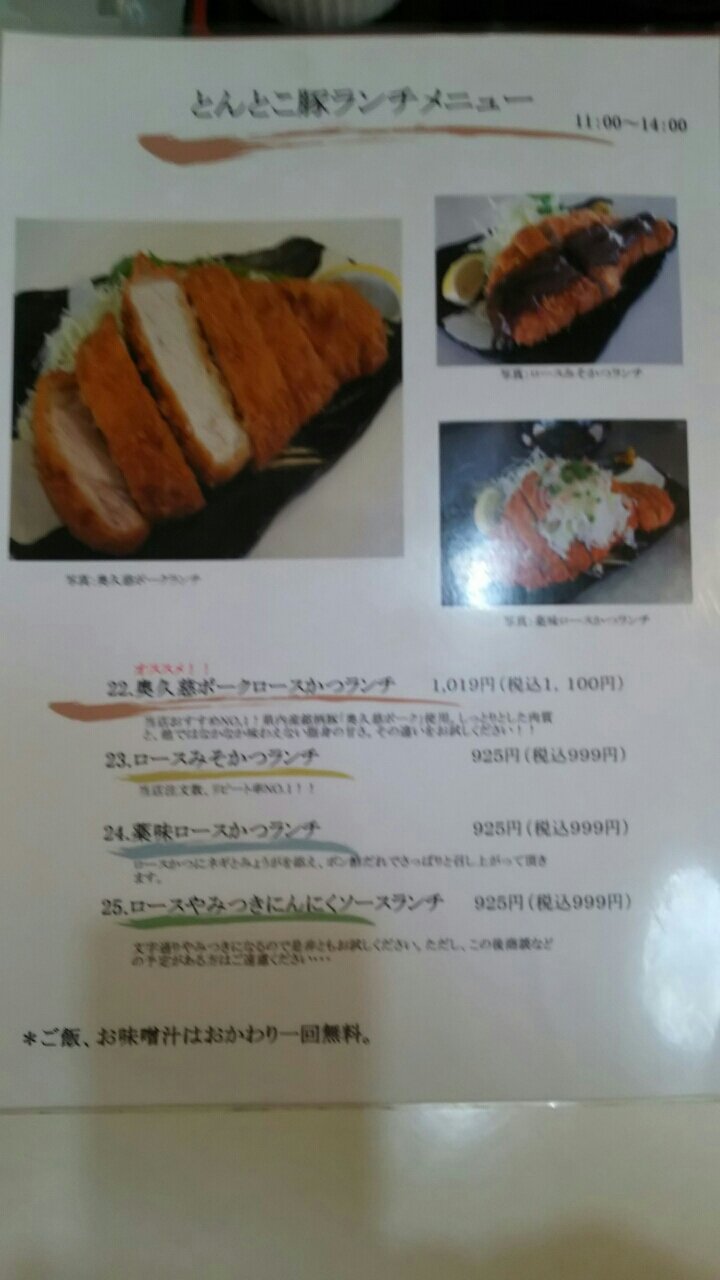 とんとこ豚ランチメニュー
11:00～14:00
写真:ロースみそかつランチ
写真:奥久慈ポークランチ
写真:薬味ロースかつランチ
オススメ!!
22.奥久慈ポークロースかつランチ 1,019円(税込1,100円)
当店おすすめNO,1!県内産銘柄豚「奥久慈ポーク」使用。しっとりとした肉質
と、他ではなかなか味わえない脂身の甘さ。その違いをお試しください!!
23.ロースみそかつランチ 925円(税込999円)
当店注文数、リピート率NO.1!!
24.薬味ロースかつランチ 925円(税込999円)
ロースかつにネギとみょうがを添え、ポン酢だれでさっぱりと召し上がって頂き
ます。
25.ロースやみつきにんにくソースランチ 925円(税込999円)
文字通りやみつきになるので是非ともお試しください。ただし、この後商談など
の予定がある方はご遠慮ください・・・
*ご飯、お味噌汁はおかわり一回無料。